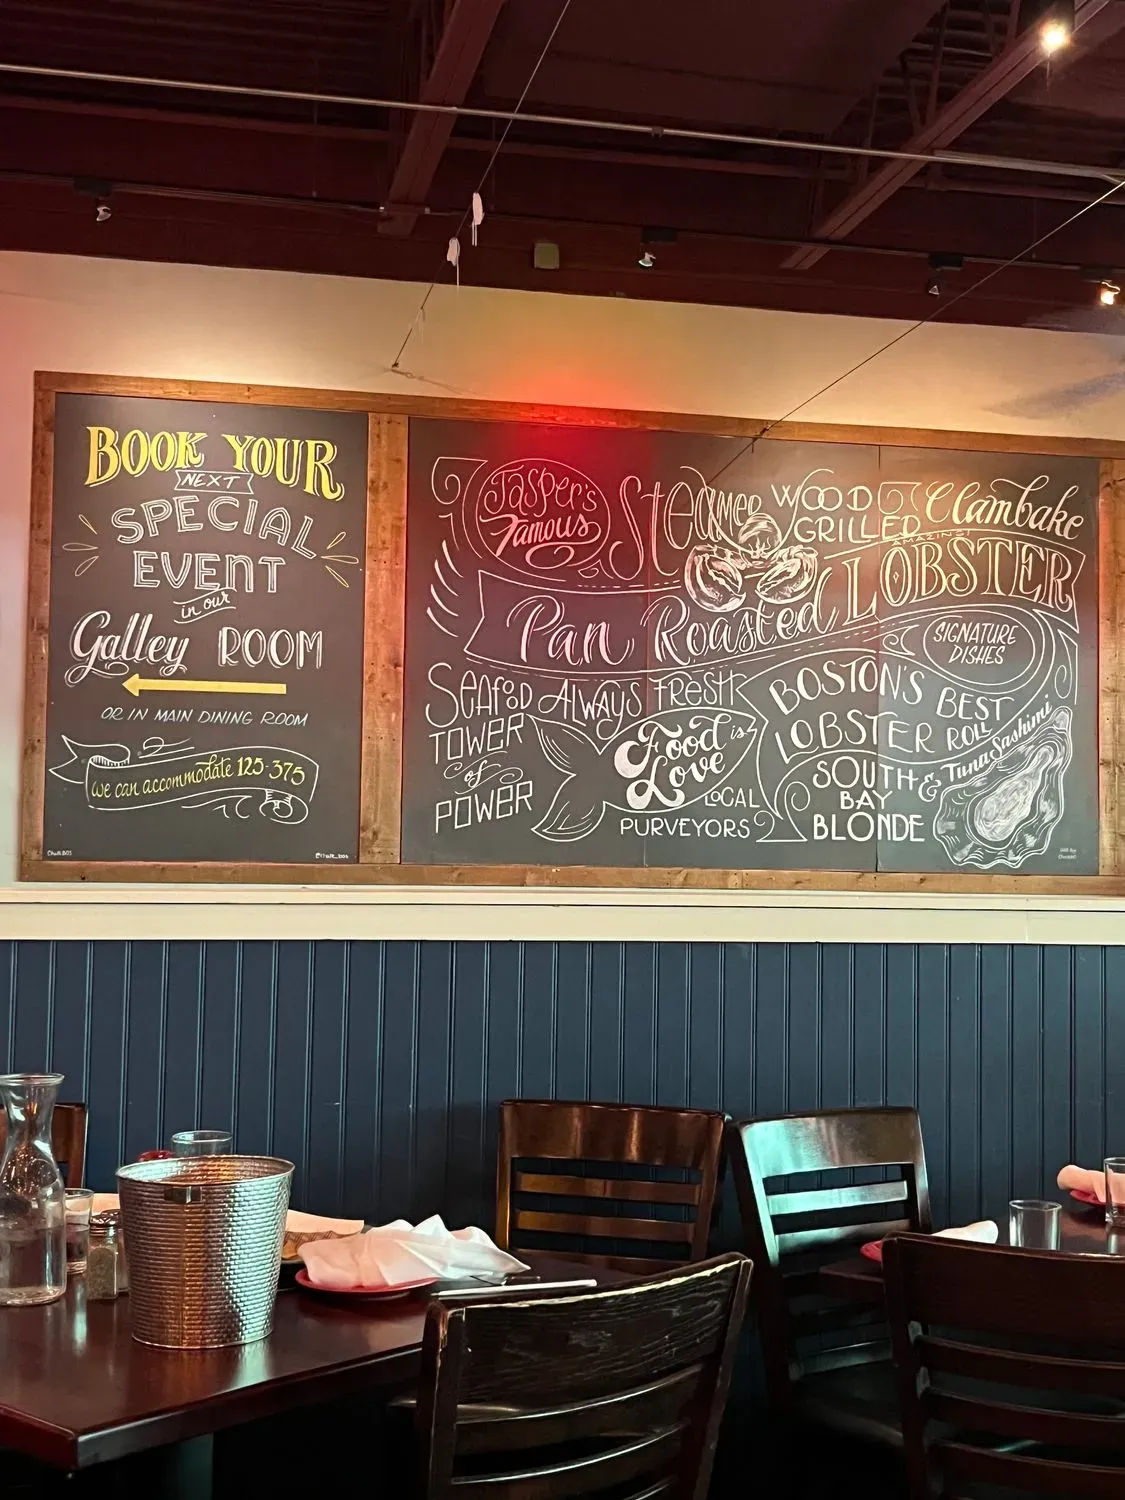 BOOK YOUR
NEXT
SPECIAL
EVENT
in our
Galley ROOM
OR IN MAIN DINING ROOM
we can accommodate 125-375
Jasper's
Famous
Steamer
WOOD
GRILLED
Clambake
AMAZING!
LOBSTER
Pan Roasted
SIGNATURE
DISHES
SEAFOOD
TOWER
of
POWER
ALWAYS FRESH
Food is
Love
LOCAL
PURVEYORS
BOSTON'S BEST
LOBSTER ROLL
SOUTH
BAY
BLONDE
& Tuna Sashimi